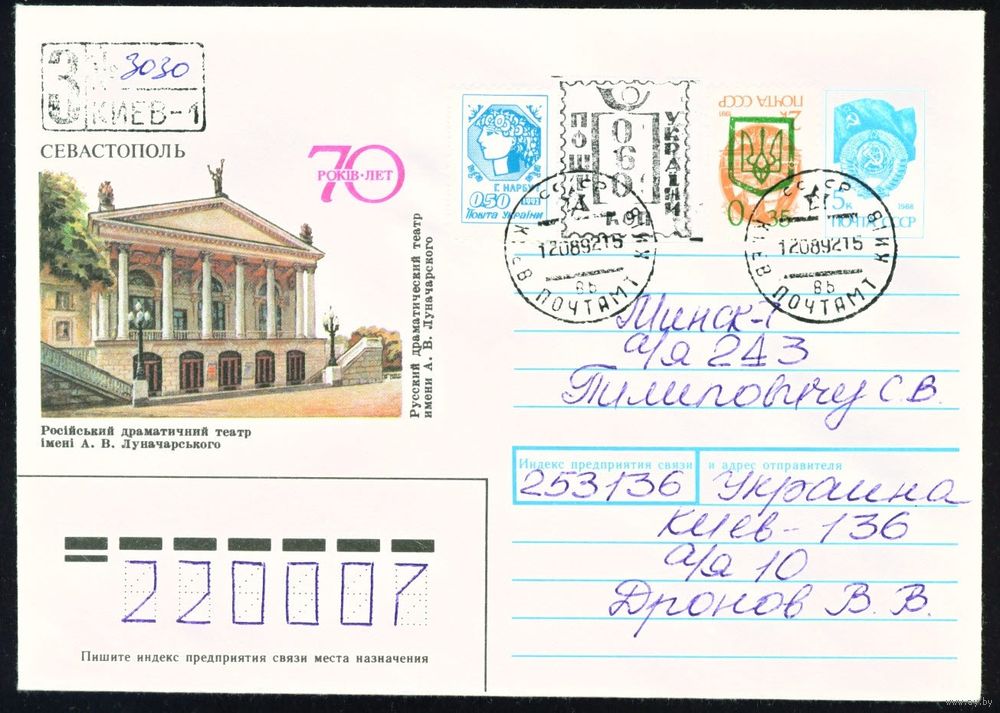 З
3030
КИЕВ-1
СЕВАСТОПОЛЬ
70
РОКІВ·ЛЕТ
Російський драматичний театр
імені А. В. Луначарського
Русский драматический театр
имени А. В. Луначарского
Г. НАРБУТ
0,50
Пошта України
ПОШТА
УКРАЇНИ
060
К.
ПОЧТА СССР
2к
1991
0
35
5к
1988
ПОЧТА СССР
СССР
КИЇВ
12089215
КИЕВ ПОЧТАМТ
СССР
КИЇВ
12089215
КИЕВ ПОЧТАМТ
Минск-7
а/я 243
Тилиповичу С.В.
Индекс предприятия связи и адрес отправителя
253136 Украина
Киев-136
а/я 10
Дронов В. В.
220007
Пишите индекс предприятия связи места назначения
www.ay.by